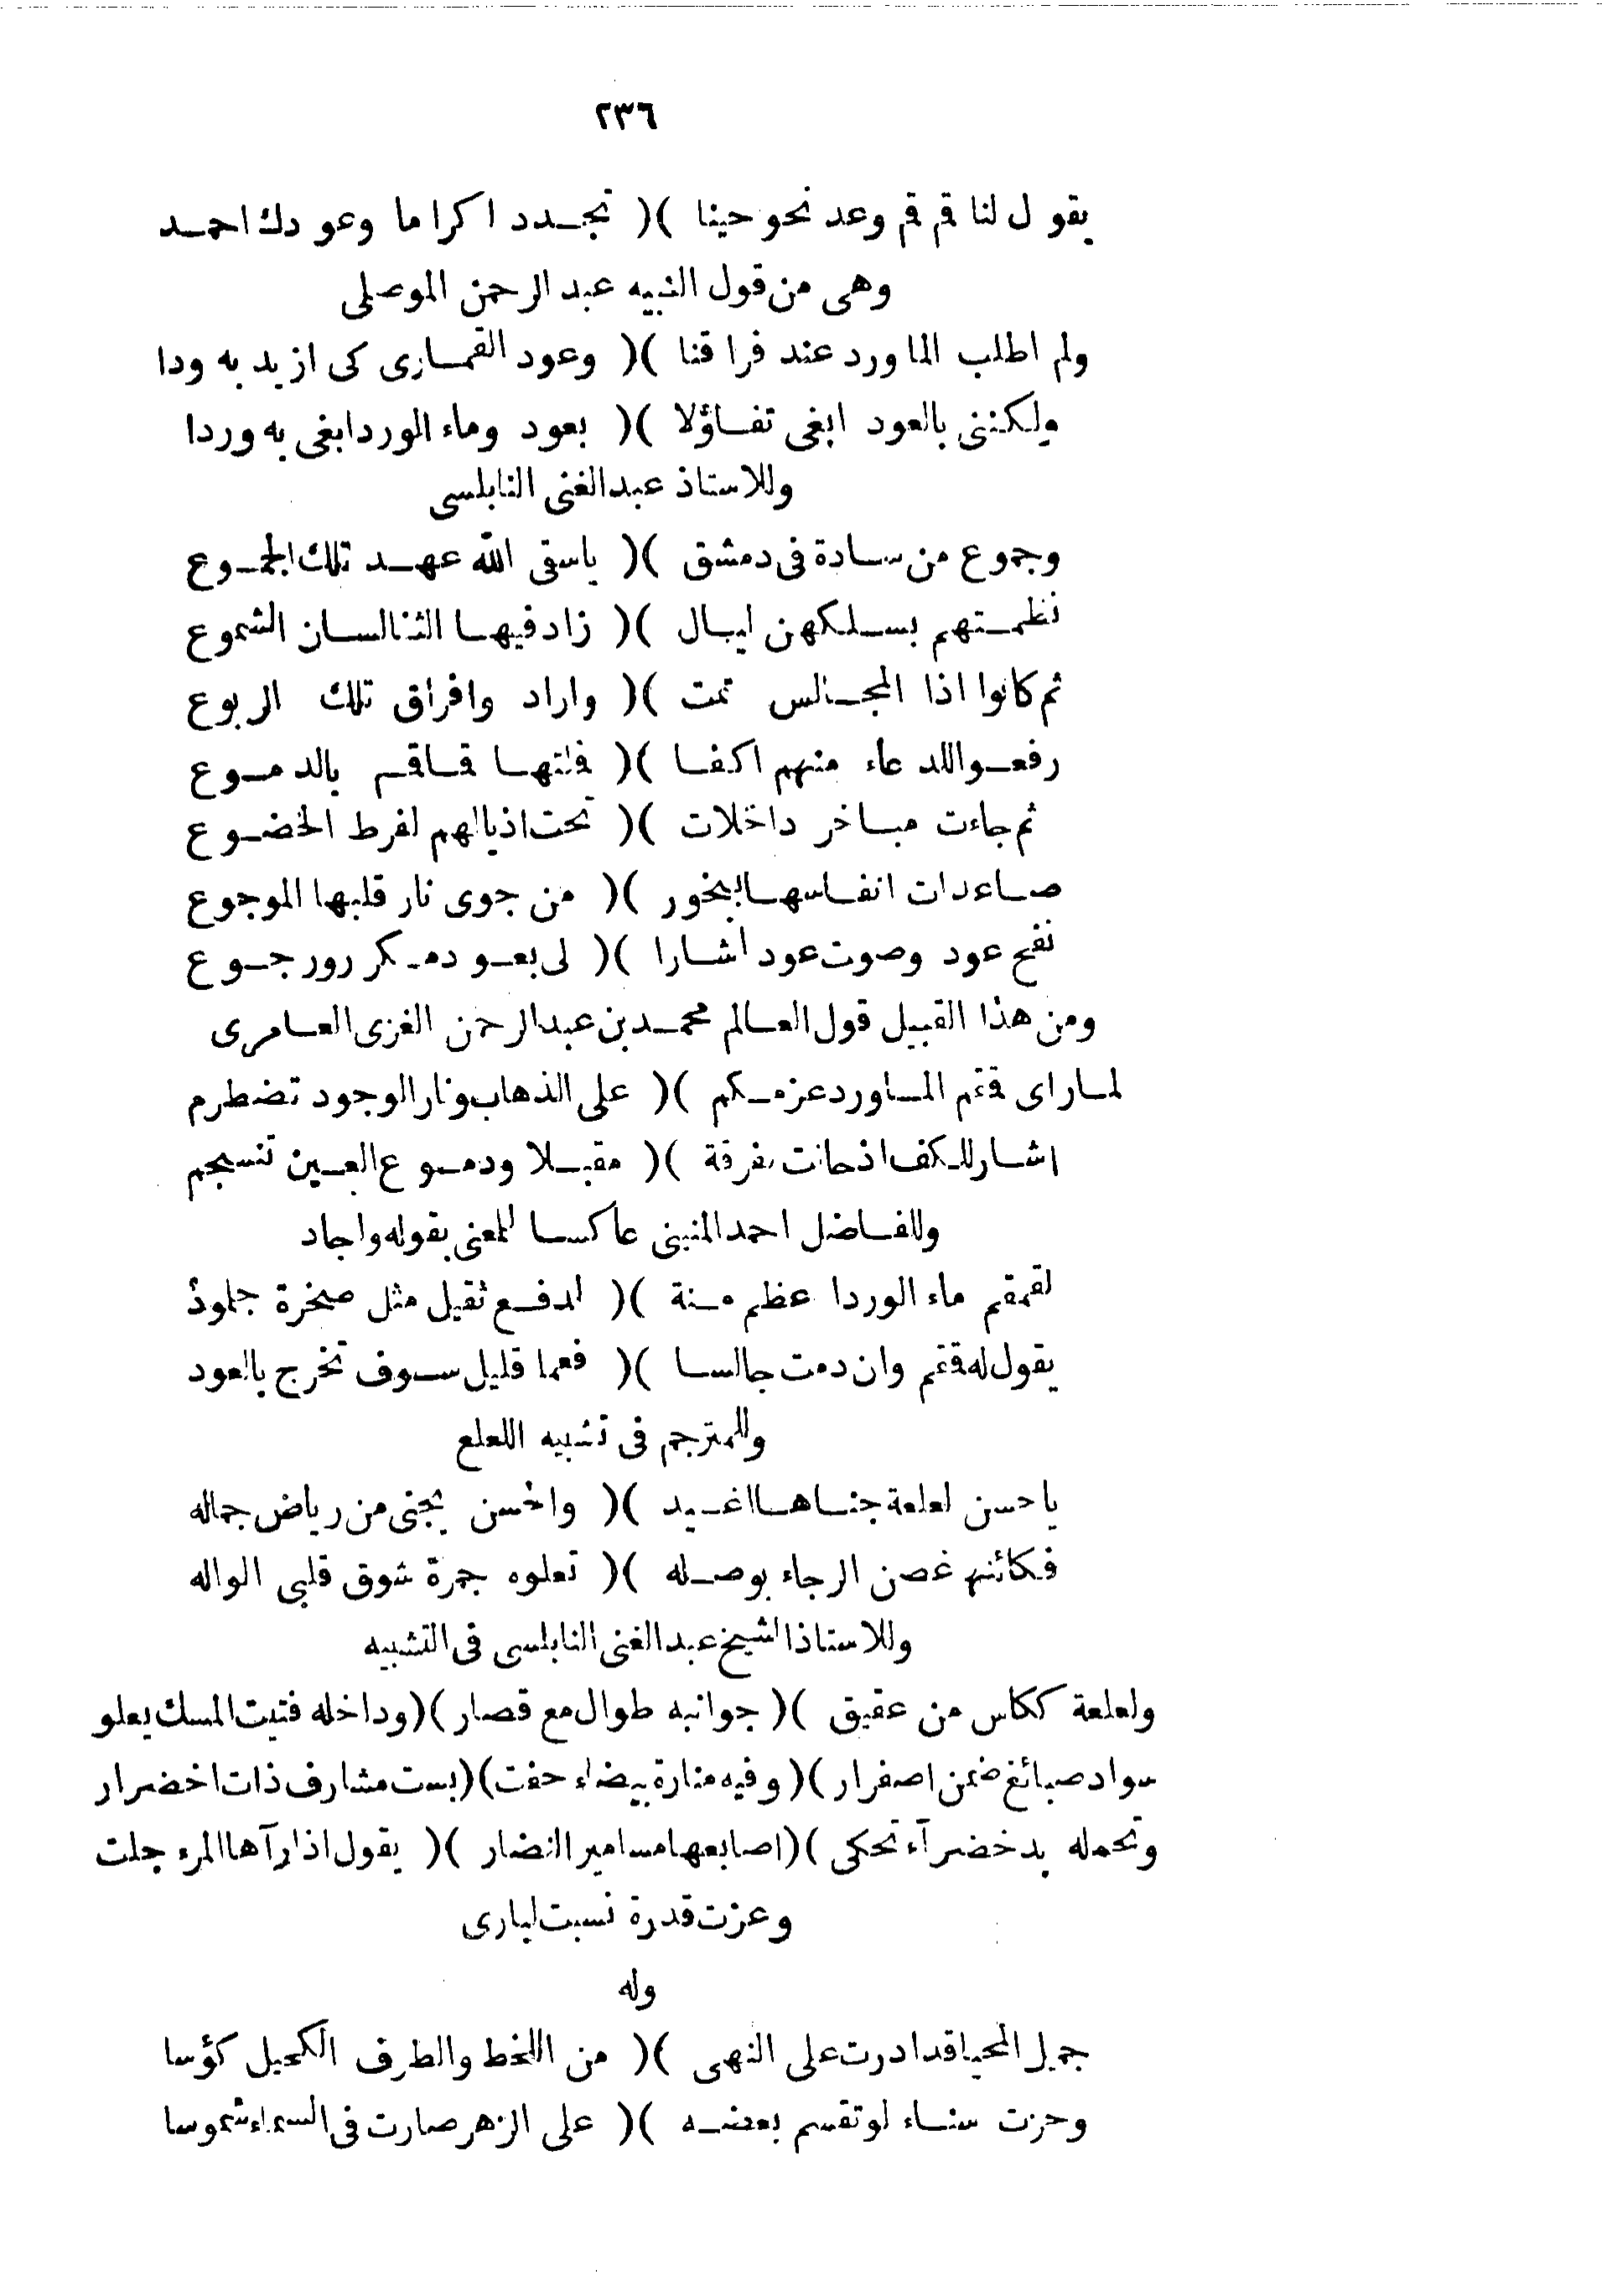 ٢٣٦
يقول لنا قم قم وعد نحو حينا )( تجدد اكراما وعودك احمد
وهى من قول النبيه عبد الرحمن الموصلى
ولم اطلب الماورد عند فراقنا )( وعود القمارى كى ازيد به ودا
ولكننى بالعود ابغى تفاؤلا )( بعود وماء الورد ابغى به وردا
وللاستاذ عبد الغنى النابلسى
وجموع من سادة فى دمشق )( ياسقى الله عهد تلك الجموع
نظمتهم بسلكهن ليال )( زاد فيها الثنا لسان الشموع
ثم كانوا اذا المجالس تمت )( وارادوا فراق تلك الربوع
رفعوا للدعاء منهم اكفا )( فلتها قاقم بالدموع
ثم جاءت مباخر داخلات )( تحت اذيالهم لفرط الخضوع
صاعدات انفاسها ببخور )( من جوى نار قلبها الموجوع
نفح عود وصوت عود اشارا )( لى بعود مكرر ورجوع
ومن هذا القبيل قول العالم محمد بن عبد الرحمن الغزى العامرى
لما راى قمقم الماورد عزمكم )( على الذهاب ونار الوجود تضطرم
اشار للكف اذ حانت بفرقة )( مقبلا ودموع العين تنسجم
وللفاضل احمد المنينى عاكسا للمعنى بقوله واجاد
لقمقم ماء الورد اعظم منة )( لدفع ثقيل مثل صخرة جلموذ
يقول له قم قم وان دمت جالسا )( فعما قليل سوف تخرج بالعود
وللمترجم فى تشبيه اللعلع
ياحسن لعلعة جناها اغيد )( والحسن يجنى من رياض جماله
فكأنها غصن الرجاء بوصله )( تعلوه جمرة شوق قلبى الواله
وللاستاذ الشيخ عبد الغنى النابلسى فى التشبيه
ولعلعة ككاس من عقيق )( جوانبه طوال مع قصار )( وداخله فتيت المسك يعلو
سواد صبائغ ضمن اصفرار )( وفيه منارة بيضاء حفت )( بست مشارف ذات اخضرار
وتحمله يد خضرآء تحكى )( اصابعها مسامير النضار )( يقول اذا رآها المرء جلت
وعزت قدرة نسبت لبارى
وله
جميل المحيا قد ادرت على النهى )( من اللحظ والطرف الكحيل كؤسا
وحزت سناء لو تقسم بعضه )( على الزهر صارت فى السماء شموسا